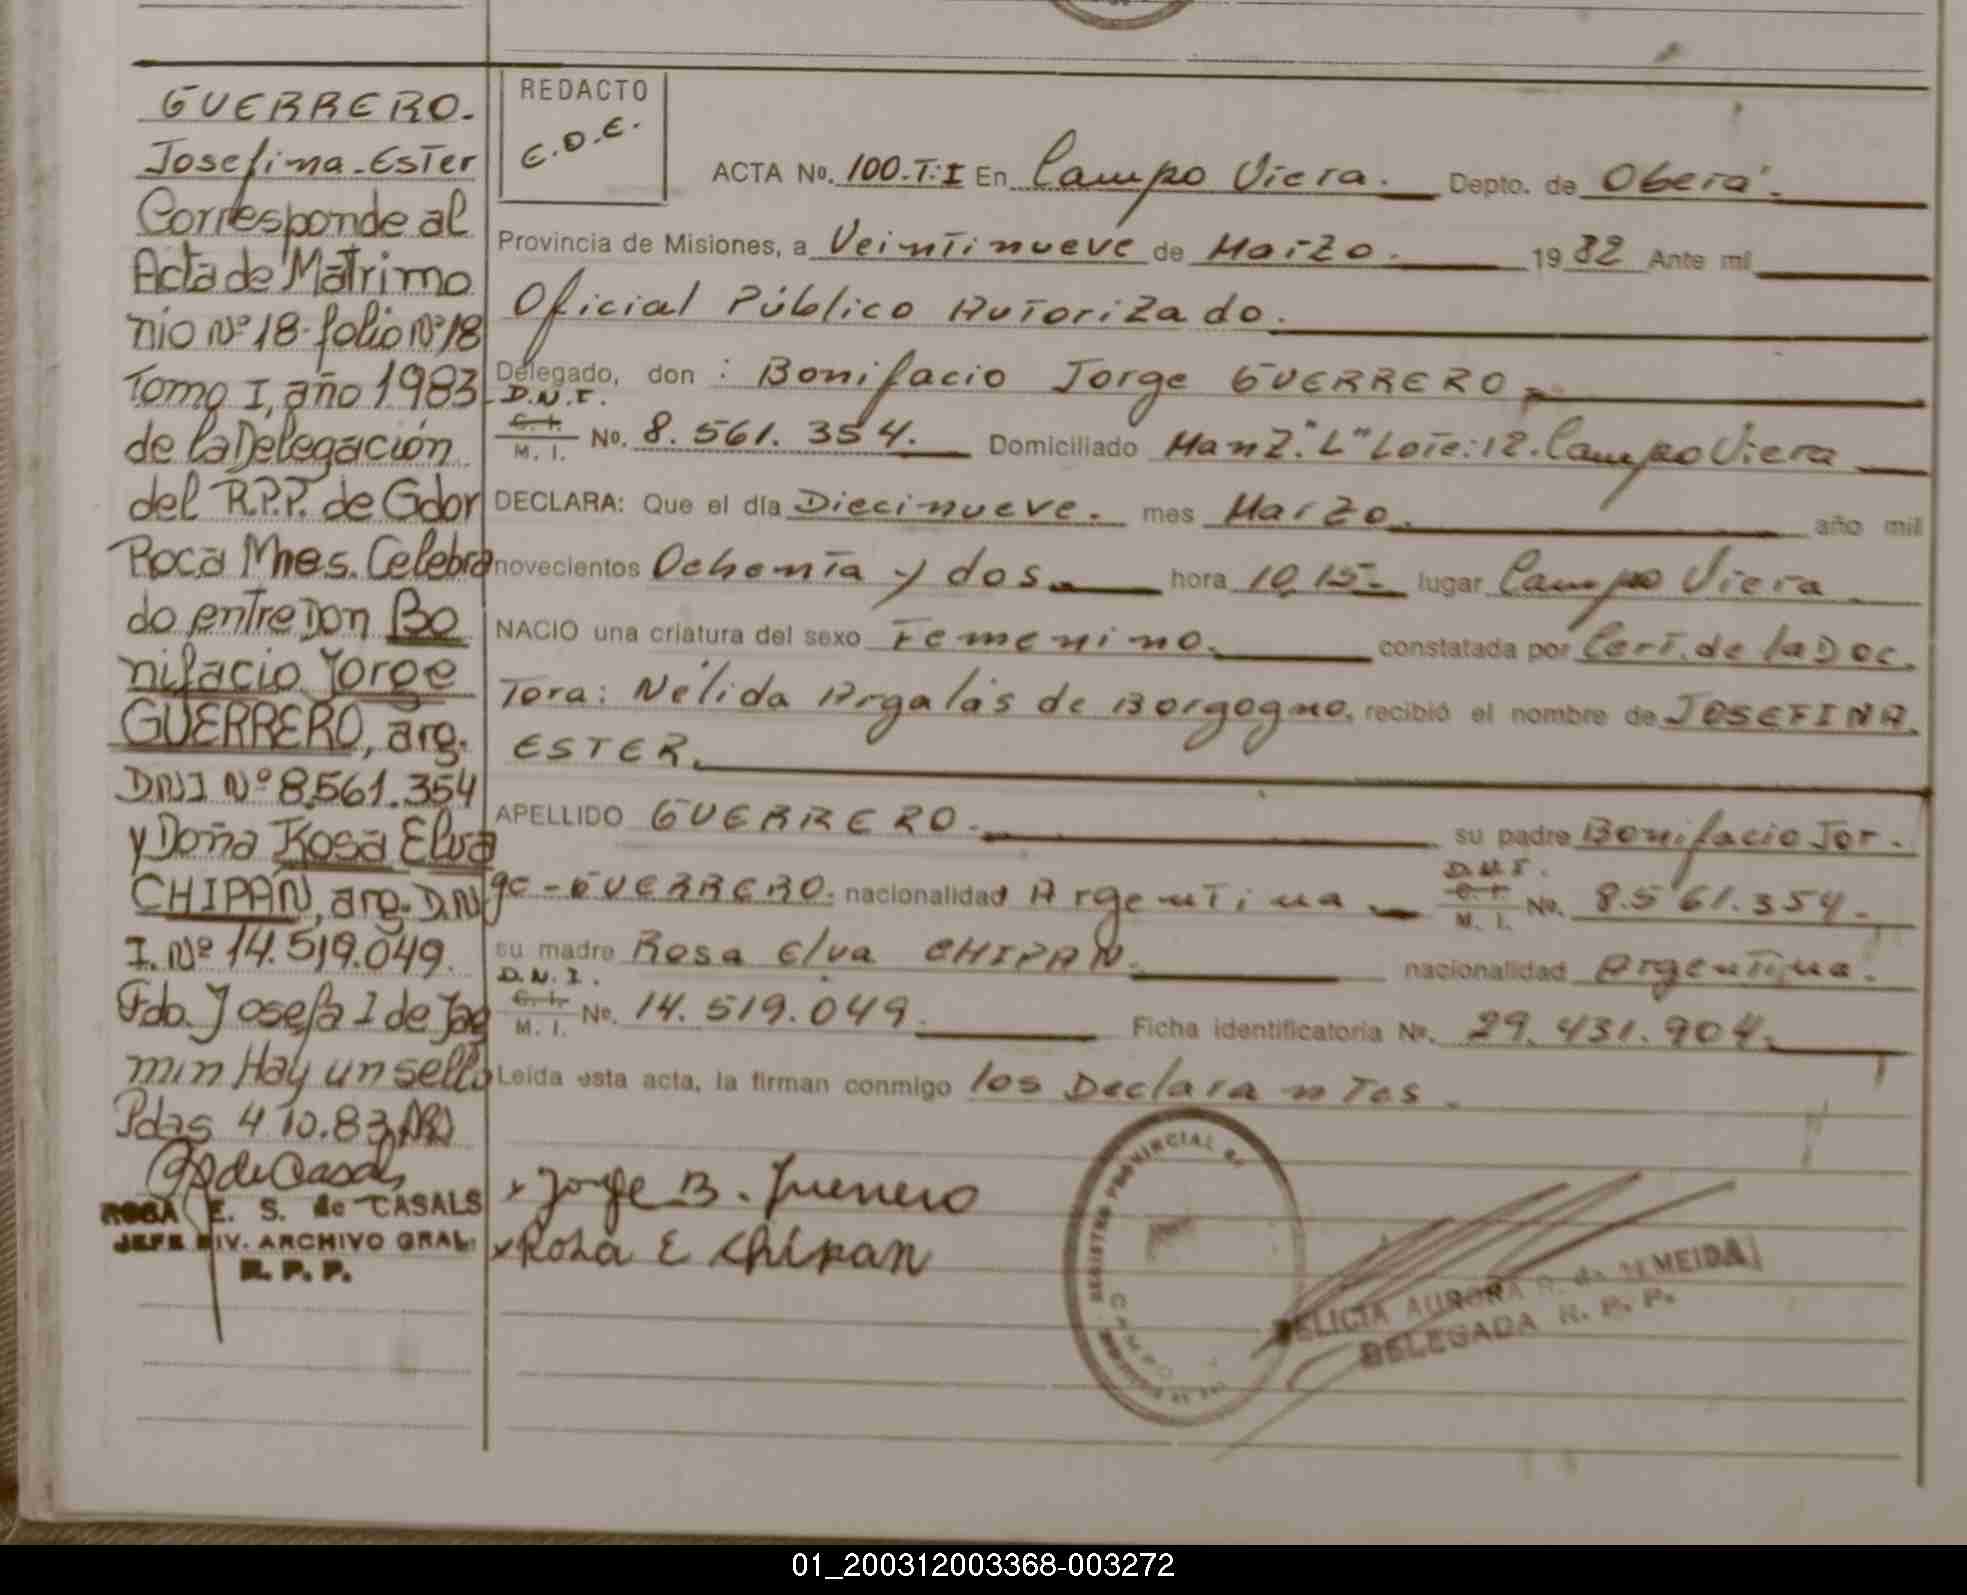 GUERRERO.
Josefina-Ester
Corresponde al
Acta de Matrimo
nio Nº 18-folio Nº 18
Tomo I, año 1983
de la Delegación
del R.P.P. de Gdor
Roca Mnes. Celebra
do entre Don Bo
nifacio Jorge
GUERRERO, arg.
DNI Nº 8.561.354
y Doña Rosa Elva
CHIPAN, arg. D.N.
I. Nº 14.519.049.
Fdo. Josefa I de Jag
min Hay un sello
Pdas 4.10.83
de Casals
ROSA E. S. de CASALS
JEFE DIV. ARCHIVO GRAL.
R. P. P.
REDACTO
E.D.E.
ACTA No. 100.T:I En Campo Viera. Depto. de Oberá.
Provincia de Misiones, a Veintinueve de Marzo. 1982 Ante mi
Oficial Público Autorizado.
Delegado, don : Bonifacio Jorge GUERRERO
D.N.I.
C. I.
M. I. No. 8.561.354. Domiciliado Manz."L" Lote:12. Campo Viera
DECLARA: Que el día Diecinueve. mes Marzo. año mil
novecientos Ochenta y dos. hora 10,15. lugar Campo Viera
NACIO una criatura del sexo Femenino. constatada por Cert. de la Doc.
Tora: Nélida Argalás de Borgogno, recibió el nombre de JOSEFINA.
ESTER.
APELLIDO GUERRERO. su padre Bonifacio Jor.
ge-GUERRERO. nacionalidad Argentina D.N.I. C. I. M. I. No. 8.561.354.
su madre Rosa Elva CHIPAN. nacionalidad Argentina.
D.N.I.
C. I.
M. I. No. 14.519.049. Ficha identificatoria No. 29.431.904.
Leída esta acta, la firman conmigo los Declarantes.
x Jorge B. Guerrero
x Rosa E Chipan
REGISTRO PROVINCIAL DE
CAMPO
FELICIA AURORA R. de ALMEIDA
DELEGADA R. P. P.
01_200312003368-003272